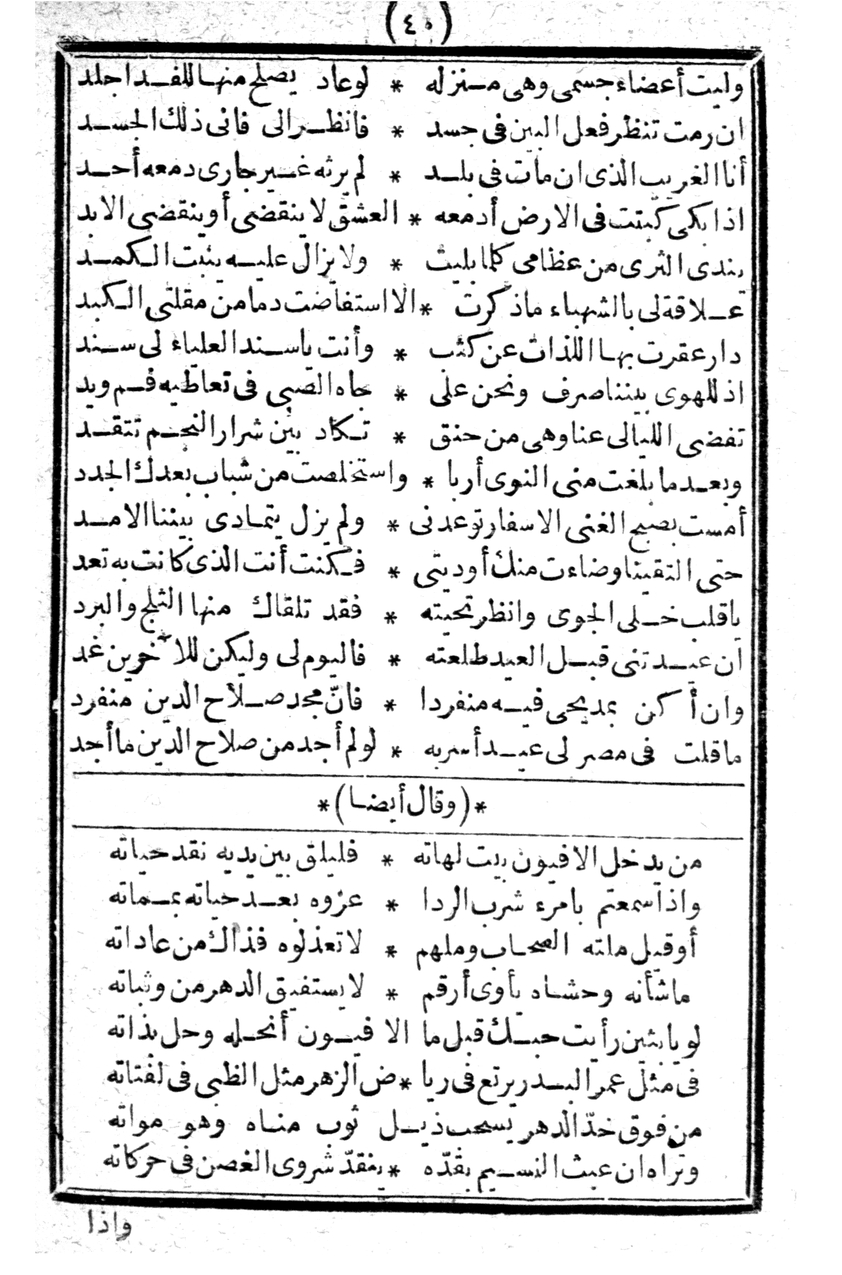 (٤٠)
وليت أعضاء جسمى وهى منزله * لوعاد يصلح منها للفدا جلد
ان رمت تنظر فعل البين فى جسد * فانظر الى فانى ذلك الجسد
أنا الغريب الذى ان مات فى بلد * لم يرثه غير جارى دمعه أحد
اذا بكى كتبت فى الارض أدمعه * العشق لا ينقضى أو ينقضى الابد
يندى الثرى من عظامى كلما بليت * ولا يزال عليه ينبت الكمد
علاقة لى بالشهباء ماذكرت * الا استفاضت دما من مقلتى الكبد
دار عقرت بها اللذات عن كثب * وأنت ياسند العلياء لى سند
اذ للهوى بيننا صرف ونحن على * جاه الصبى فى تعاطيه فم ويد
تفضى الليالى عنا وهى من حنق * تكاد بين شرار النجم تتقد
وبعد ما بلغت منى النوى أربا * واستخلصت من شباب بعدك الجدد
أمست بصبح الغنى الاسفار توعدنى * ولم يزل يتمادى بيننا الامد
حتى التقينا وضاءت منك أوديتى * فكنت أنت الذى كانت به تعد
ياقلب خلى الجوى وانظر تحيته * فقد تلقاك منها الثلج والبرد
ان عيدتنى قبل العيد طلعته * فاليوم لى وليكن للآخرين غد
وان أكن بمديحى فيه منفردا * فان مجد صلاح الدين منفرد
ماقلت فى مصر لى عيد أسربه * لولم أجد من صلاح الدين ما أجد
*(وقال أيضا)*
من يدخل الافيون بيت لهاته * فليلق بين يديه نقد حياته
واذا سمعتم بامرء شرب الردا * عزوه بعد حياته بمماته
أوقيل ملته الصحاب وملهم * لاتعذلوه فذاك من عاداته
ماشأنه وحشاه يأوى أرقم * لا يستفيق الدهر من وثباته
لو يابثين رأيت حبك قبل ما الا فيون أنحله وحل بذاته
فى مثل عمر البدر يرتع فى ريا * ض الزهر مثل الظبى فى لفتاته
من فوق خد الدهر يسحب ذيل ثوب مناه وهو مواته
وتراه ان عبث النسيم بقده * ينقد شروى الغصن فى حركاته
واذا